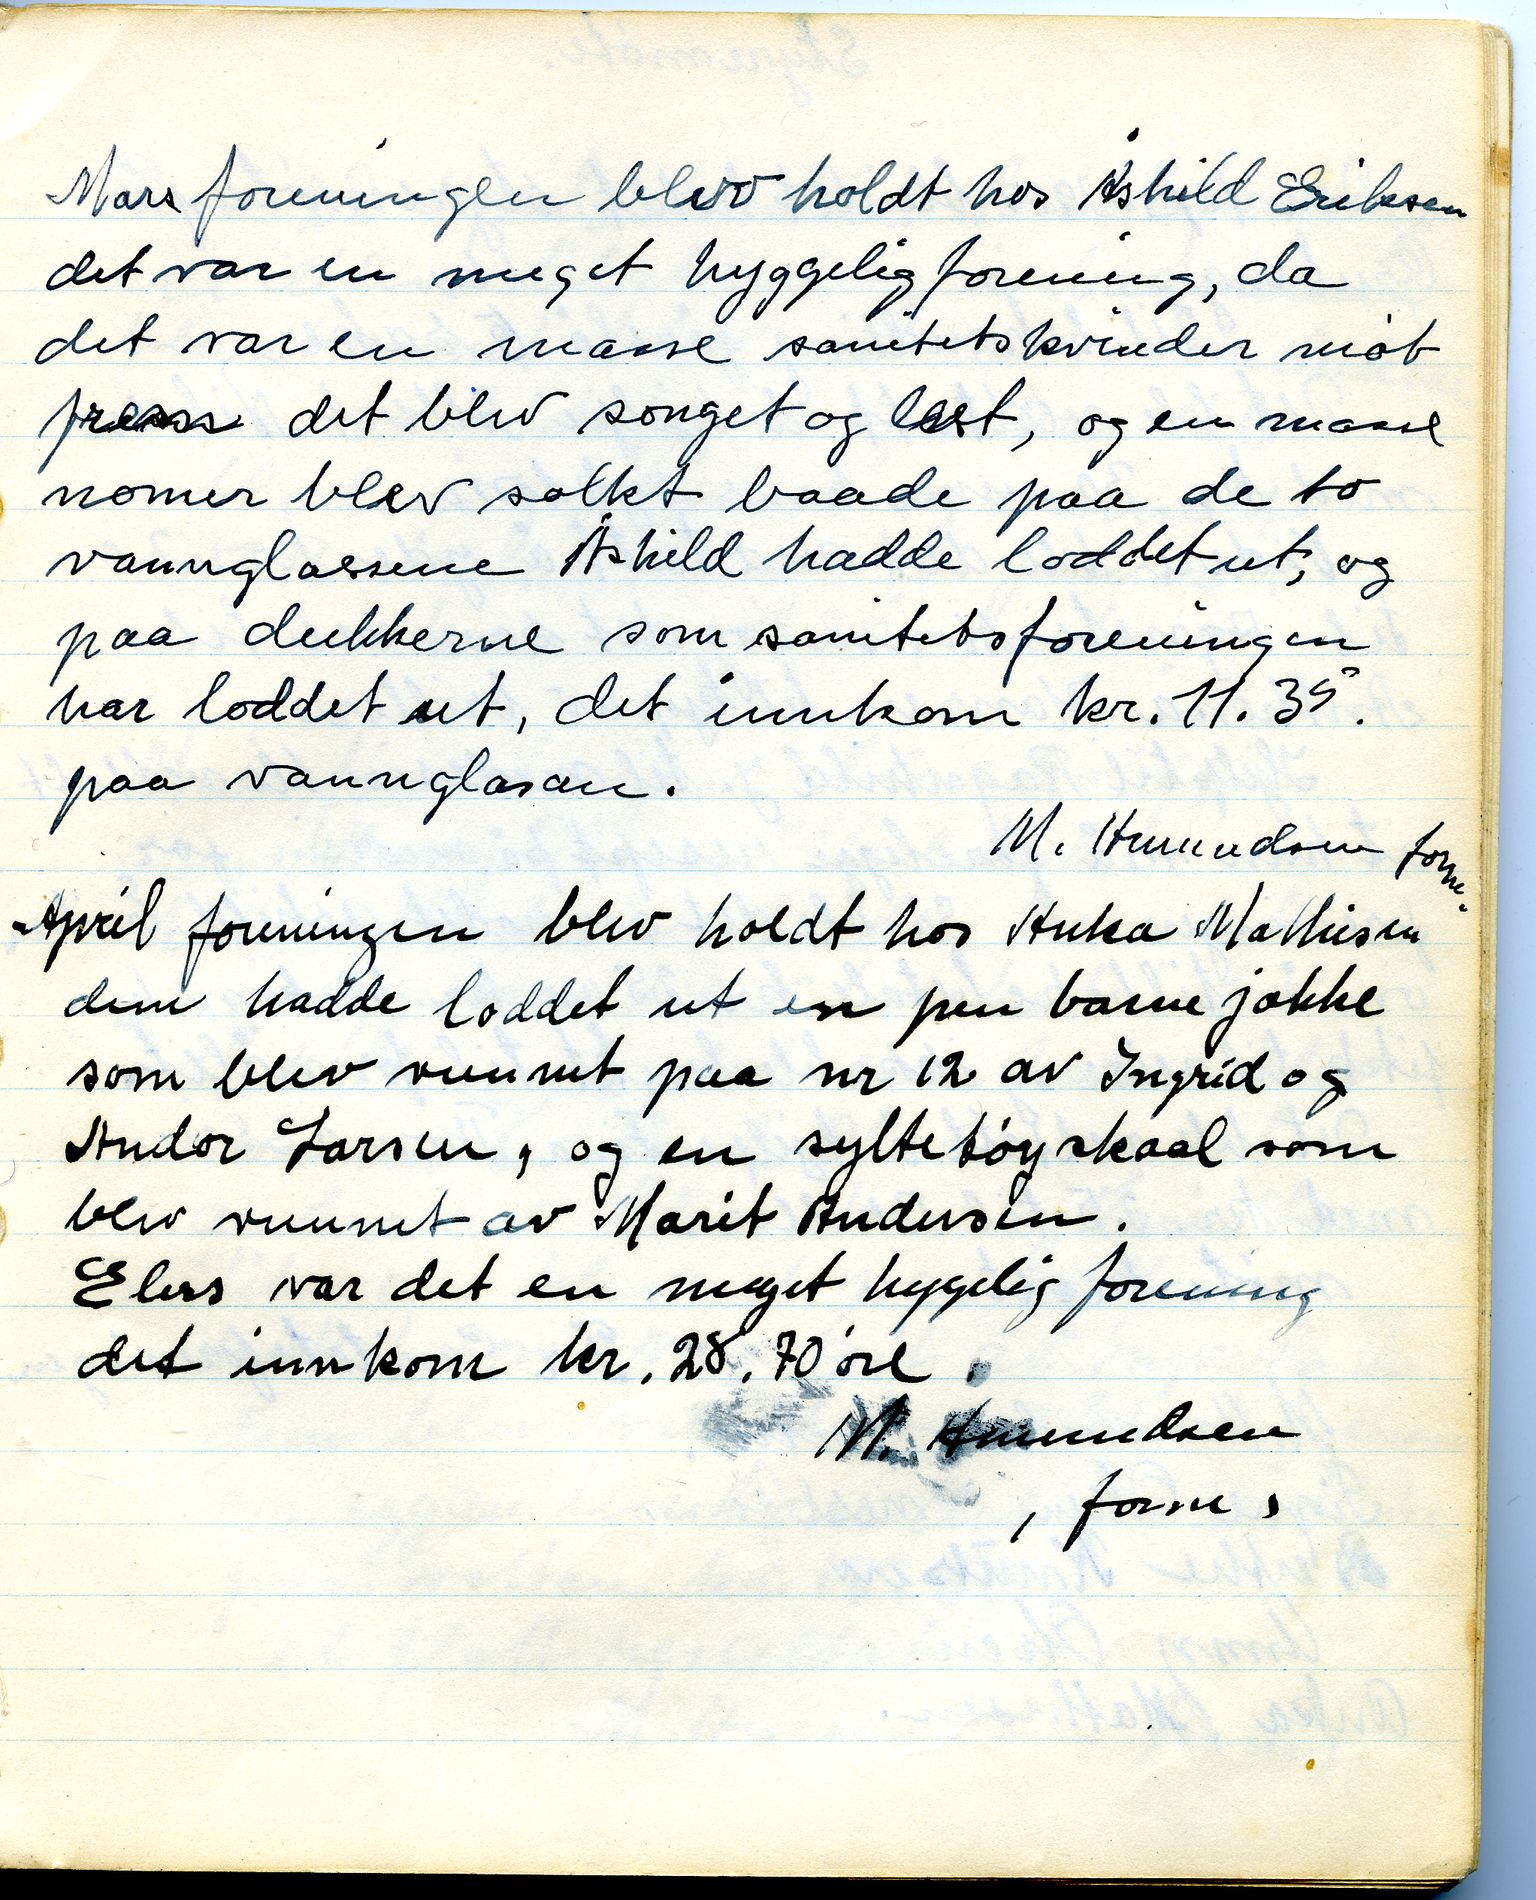 Mars foreningen blev holdt hos Åshild Eriksen
det var en meget hyggelig forening, da
det var en masse sanitetskvinder møt
frem det blev songet og lest, og en masse
nomer blev solkt baade paa de to
vannglassene Åshild hadde loddet ut, og
paa dukkerne som sanitetsforeningen
har loddet ut, det innkom kr. 11.35.
paa vannglasan.
M. Amundsen form.
April foreningen blev holdt hos Anka Mathisen
dem hadde loddet ut en pen barne jakke
som blev vunnet paa nr 12 av Ingrid og
Andor Larsen, og en syltetøyskaal som
blev vunnet av Marit Andersen.
Elers var det en meget hygelig forening
det innkom kr. 28.70 øre.
M. Amundsen
, form,